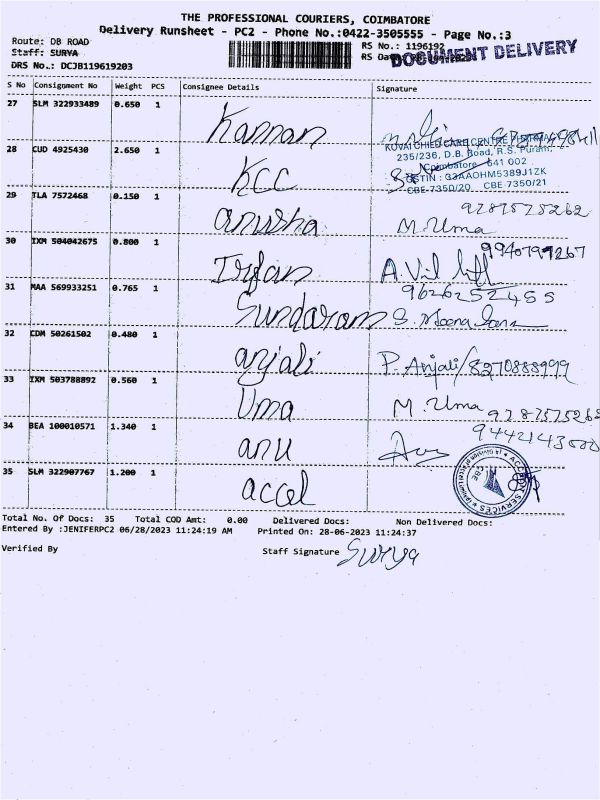 THE PROFESSIONAL COURIERS, COIMBATORE
Delivery Runsheet - PC2 - Phone No.:0422-3505555 - Page No.:3
Route: DB ROAD
Staff: SURYA
DRS No.: DCJB119619203
RS No.: 1196192
RS Da
DOCUMENT DELIVERY
S No Consignment No Weight PCS Consignee Details Signature
27 SLM 322933489 0.650 1 Kannan
28 CUD 4925430 2.650 1 KCC
KOVAI CHEST CARE CENTRE PHARMACY
235/236, D.B. Road, R.S. Puram,
Coimbatore - 641 002
GSTIN : 33AAOHM5389J1ZK
CBE-7350/20 CBE-7350/21
29 TLA 7572468 0.150 1 anusha M. Uma 9787575262
30 IXM 504042675 0.800 1 Irfan 9940799267
31 MAA 569933251 0.765 1 Sundaram 9626252455
32 CDM 50261502 0.480 1 anjali P. Anjali/8270888999
33 IXM 503788892 0.560 1 Uma M. Uma 9787575262
34 BEA 100010571 1.340 1 anu
35 SLM 322907767 1.200 1 accel
Total No. Of Docs: 35 Total COD Amt: 0.00 Delivered Docs: Non Delivered Docs:
Entered By :JENIFERPC2 06/28/2023 11:24:19 AM Printed On: 28-06-2023 11:24:37
Verified By Staff Signature Surya